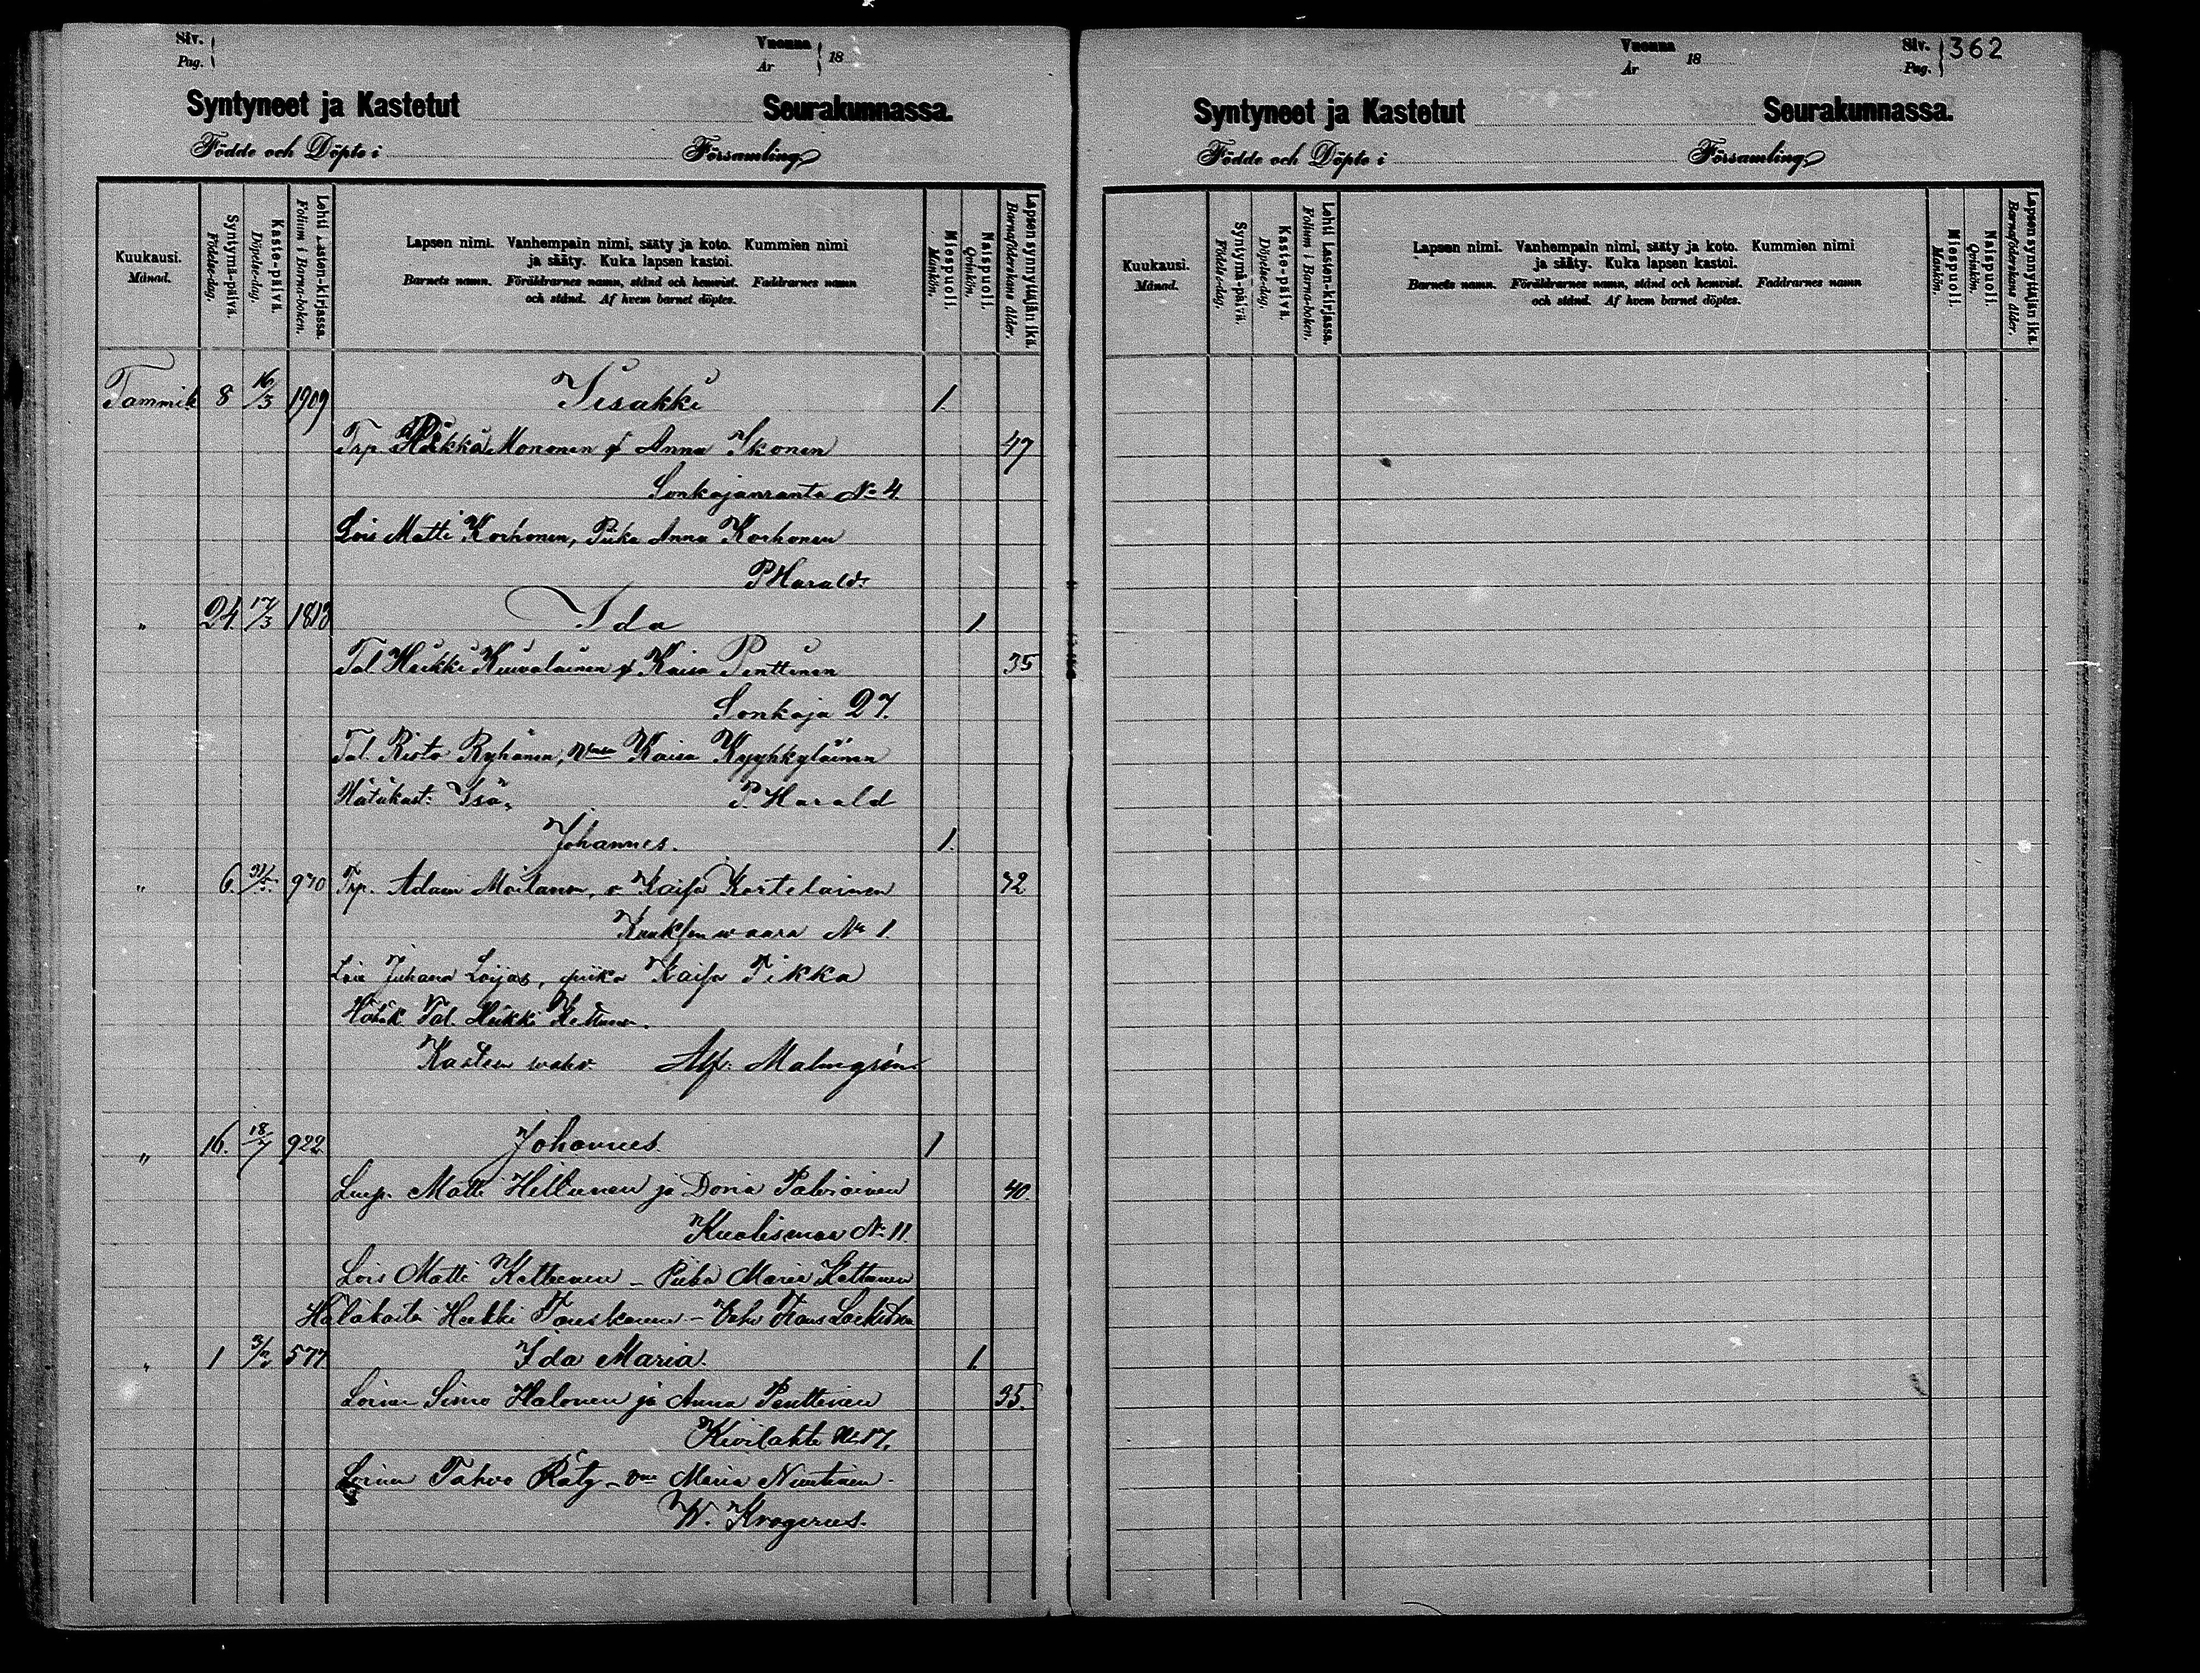 Siv.
Pag.
Vuonna
År
18
Syntyneet ja Kastetut Seurakunnassa.
Födde och Döpte i Församling
Kuukausi.
Månad.
Syntymä-päivä.
Födelse-dag.
Kaste-päivä.
Döpelse-dag.
Lehti Lasten-kirjassa.
Folium i Barna-boken.
Lapsen nimi. Vanhempain nimi, sääty ja koto. Kummien nimi
ja sääty. Kuka lapsen kastoi.
Barnets namn. Föräldrarnes namn, stånd och hemvist. Faddrarnes namn
och stånd. Af hvem barnet döptes.
Miespuoli.
Mankön.
Naispuoli.
Qvinkön.
Lapsen synnyttäjän ikä.
Barnaföderskans ålder.
Tammik 8 16/3 1909 Iisakki 1.
Trp. Monen & Anna Ikonen 47
Sonkajanranta No 4.
Lois Matti Korhonen, Piika Anna Korhonen
P Harald.
" 24. 17/3 1813 Ida 1
Tal Heikki Kuivalainen & Kaisa Penttinen 35
Sonkaja 27.
Tal. Risto Ryhänen, Kaisa Kyyhkyläinen
Hätäkast: Isä. P. Harald
Johannes. 1.
" 6. 970 Trp. Adam Moilanen, o. Kaisa Kortelainen 42
Kuuksenwaara No 1.
Lois Juhana Loijas, piika Kaisa Tikka
Hätäk Tal. Heikki Kettunen.
Kasteen wahv. Alf. Malmgrén
" 16. 18/7 922. Johannes. 1
Matti Hiltunen ja Doria 40.
Kuolismaa No 11.
Lois Matti Kettunen - Piika Maria Kettunen
Hätäkaste Heikki - Vahv Frans
" 1 577 Ida Maria. 1.
Loinen Simo Halonen ja Anna Penttinen 35.
Kivilahti No 17.
Loinen Tahvo Räty - Maria
W. Krogerus.
Vuonna
År
18
Siv.
Pag.
362
Syntyneet ja Kastetut Seurakunnassa.
Födde och Döpte i Församling
Kuukausi.
Månad.
Syntymä-päivä.
Födelse-dag.
Kaste-päivä.
Döpelse-dag.
Lehti Lasten-kirjassa.
Folium i Barna-boken.
Lapsen nimi. Vanhempain nimi, sääty ja koto. Kummien nimi
ja sääty. Kuka lapsen kastoi.
Barnets namn. Föräldrarnes namn, stånd och hemvist. Faddrarnes namn
och stånd. Af hvem barnet döptes.
Miespuoli.
Mankön.
Naispuoli.
Qvinkön.
Lapsen synnyttäjän ikä.
Barnaföderskans ålder.